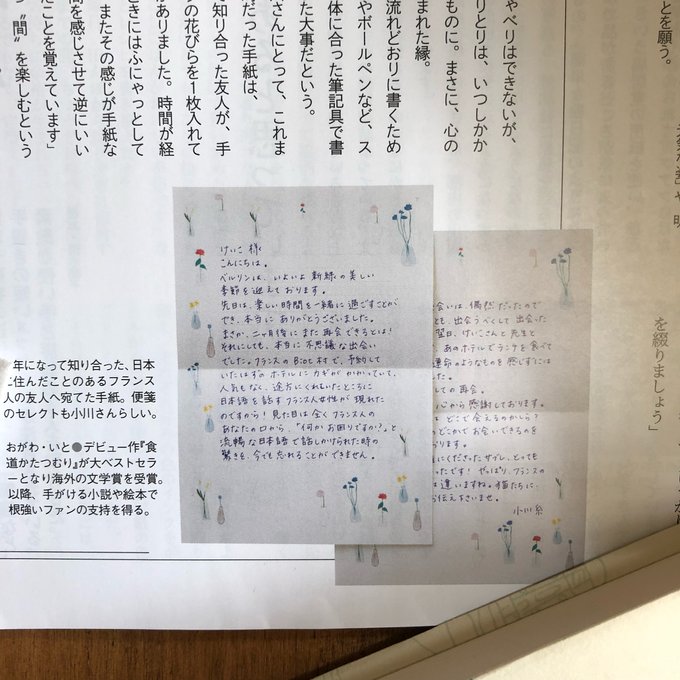 とを願う。
を綴りましょう」
ゃべりはできないが、
りとりは、いつしかか
ものに。まさに、心の
まれた縁。
流れどおりに書くため
やボールペンなど、ス
体に合った筆記具で書
た大事だという。
さんにとって、これま
だった手紙は、
知り合った友人が、手
の花びらを1枚入れて
ありました。時間が経
きにはふにゃっとして
またその感じが手紙な
間を感じさせて逆にいい
たことを覚えています」
つ〝間〟を楽しむという
けいこ様
こんにちは。
ベルリンは、いよいよ新緑の美しい
季節を迎えております。
先日は、楽しい時間を一緒に過ごすことが
でき、本当にありがとうございました。
まさか、二ヶ月後にまた再会できるとは!
それにしても、本当に不思議な出会い
でした。フランスのBiot村で、予約して
いたはずのホテルにカギがかかっていて、
人気もなく、途方にくれていたところに
日本語を話すフランス人女性が現れた
のですから! 見た目は全くフランス人の
あなたの口から、「何かお困りですか?」と
流暢な日本語で話しかけられた時の
驚きを、今でも忘れることができません。
会いは、偶然だったので
とも、出会うべくして出会った
翌日、けいこさんと先生と
、あのホテルでランチを食べて
運命のようなものを感じずには
した。
しての再会。
心から感謝しております。
はどこで会えるのかしら?
のどこかでお会いできるのを
おります。
にくださったサブレ、とっても
ったです! やっぱり、フランスの
は違いますね。猫たちに、
お伝え下さいませ。
小川糸
年になって知り合った、日本
に住んだことのあるフランス
人の友人へ宛てた手紙。便箋
のセレクトも小川さんらしい。
おがわ・いと●デビュー作『食
道かたつむり』が大ベストセラ
ーとなり海外の文学賞を受賞。
以降、手がける小説や絵本で
根強いファンの支持を得る。